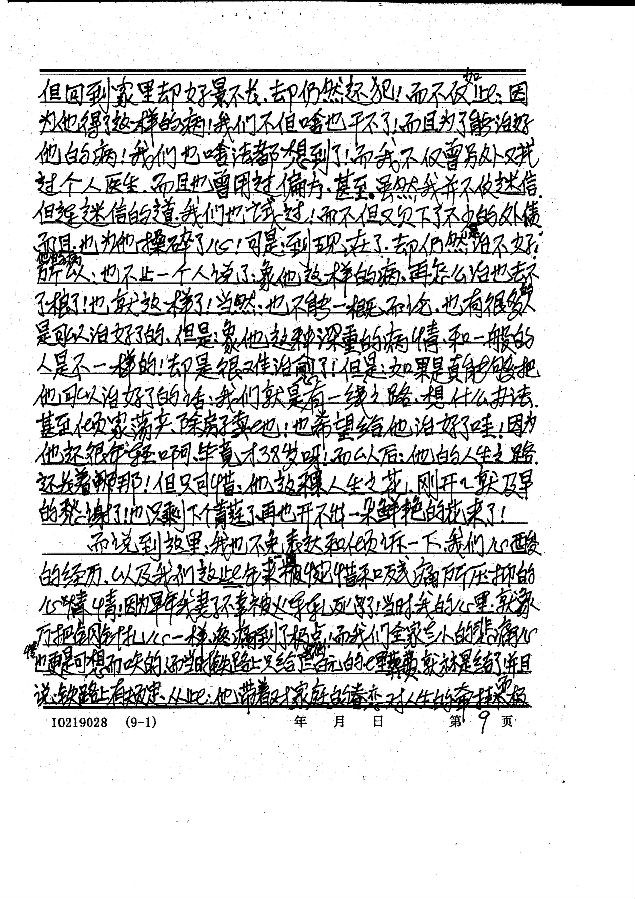 但回到家里却好景不长、却仍然还犯!而不仅如此:因
为他得了这样的病!我们不但啥也干不了!而且为了能治好
他的病!我们也啥法都想到了!而我不仅曾另外又找
过个人医生、而且也曾用过偏方、甚至、虽然我并不仅迷信
但连迷信的道、我们也试过!而不但又欠下了不少的外债
而且、也为他操碎了心!可是:到现在了、却仍然治不好他的病
所以:也不止一个人说了:象他这样的病、再怎么治也去不
了根了!也就这样了!当然:也不能一概而论、也有很多人
是可以治好了的、但是:象他这种深重的病情、和一般的
人是不一样的!却是很难治愈了!但是:如果是真能够把
他可以治好了的话、我们就是有一线之路、想什么办法、
甚至倾家荡产、除房子卖地!也希望给他治好了哇!因为
他还很年轻啊、毕竟才38岁呀!而以后:他的人生之路、
还长着哪那!但只可惜:他这棵人生之花、刚开几就及早
的凋谢了!也只剩下个青莛了、再也开不出一朵鲜艳的花来了!
而说到这里、我也不免表达和倾诉一下、我们心酸
的经历、以及我们这些年来被惋惜和残痛所压抑的
心情!因为早年我妻子不幸被火车轧死了!当时我的心里就象
万把钢针扎心一样疼痛到了极点!而我们全家老小的悲痛心情
也更是可想而知的!而当时铁路上只给 百元的 葬费、就算是给了、并且
说:铁路上有规定、从此:她带着对家庭的眷恋、对人生的牵挂
IO219028 (9-1) 年 月 日 第 9 页